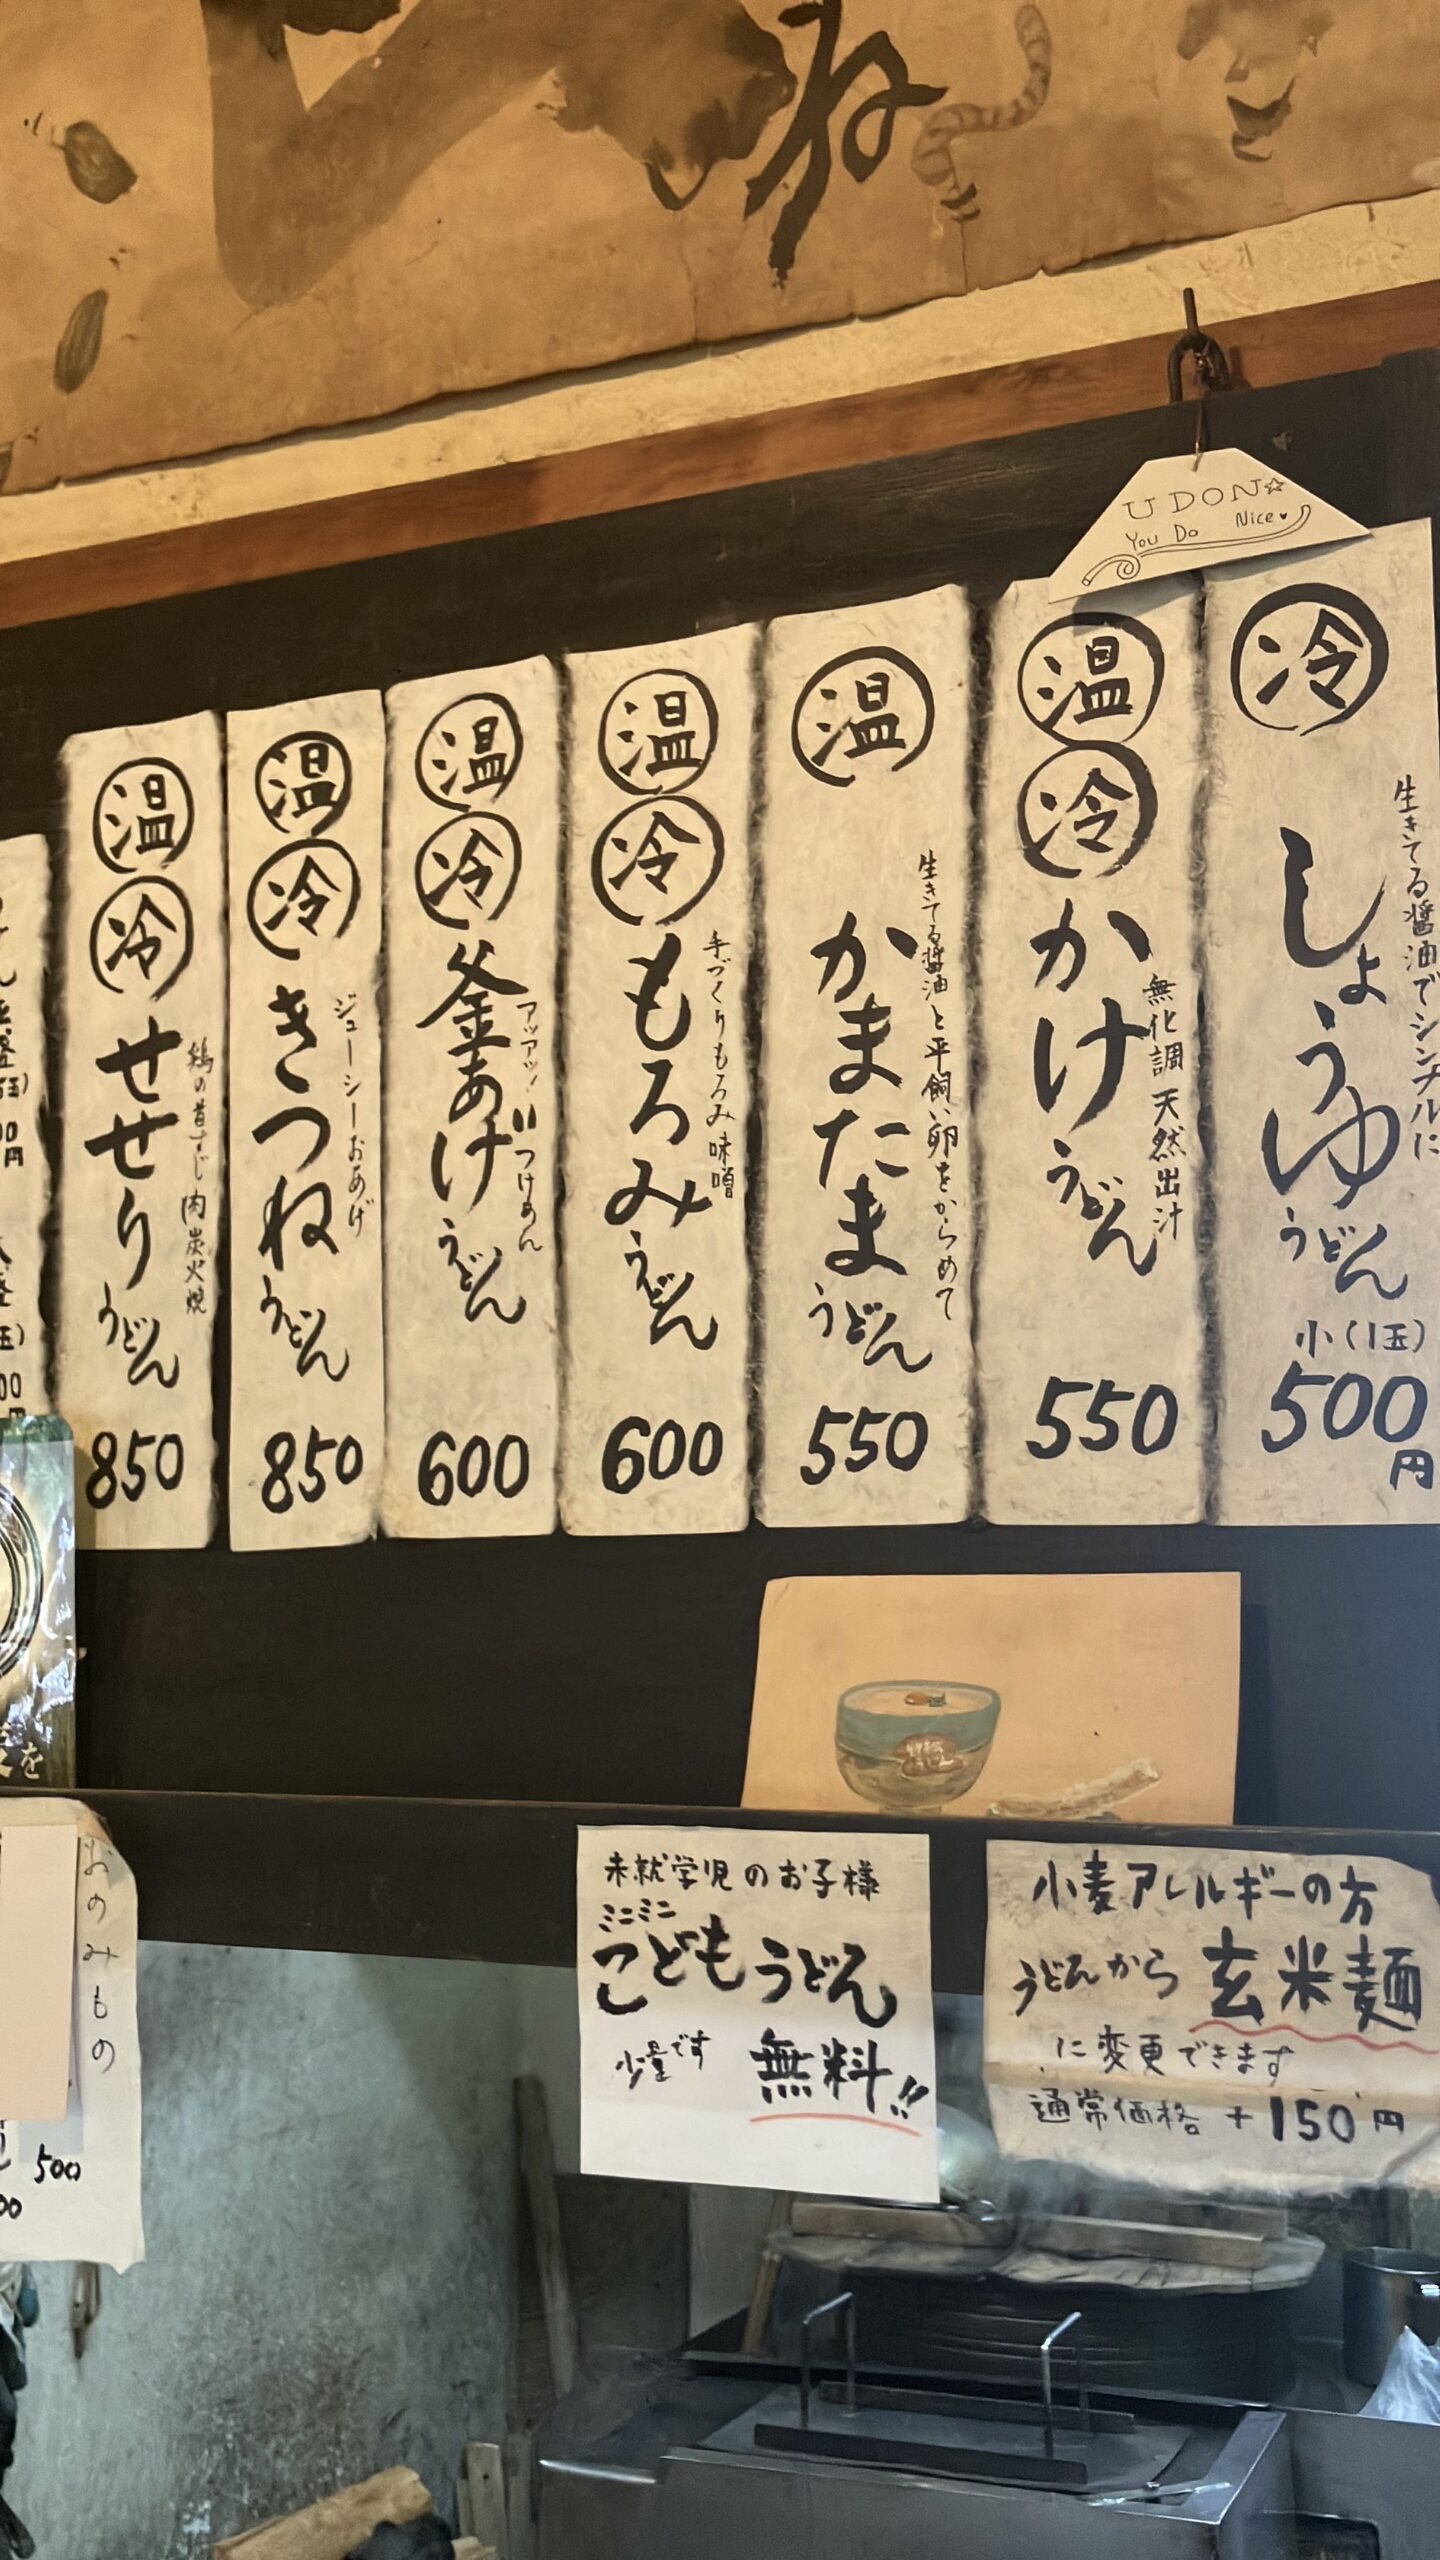 UDON☆
You Do Nice♥
冷
しょうゆうどん
生きてる醤油でシンプルに
小(1玉)
500円
温
冷
かけうどん
無化調 天然出汁
550
温
かまたまうどん
生きてる醤油と平飼い卵をからめて
550
温
冷
もろみうどん
手づくりもろみ味噌
600
温
冷
釜あげうどん
アッアッ!!つけめん
600
温
冷
きつねうどん
ジューシーおあげ
850
温
冷
せせりうどん
鶏の首すじ肉炭火焼
850
未就学児のお子様
ミニミニ
こどもうどん
少量です 無料!!
小麦アレルギーの方
うどんから玄米麺
に変更できます
通常価格 +150円
おのみもの
500